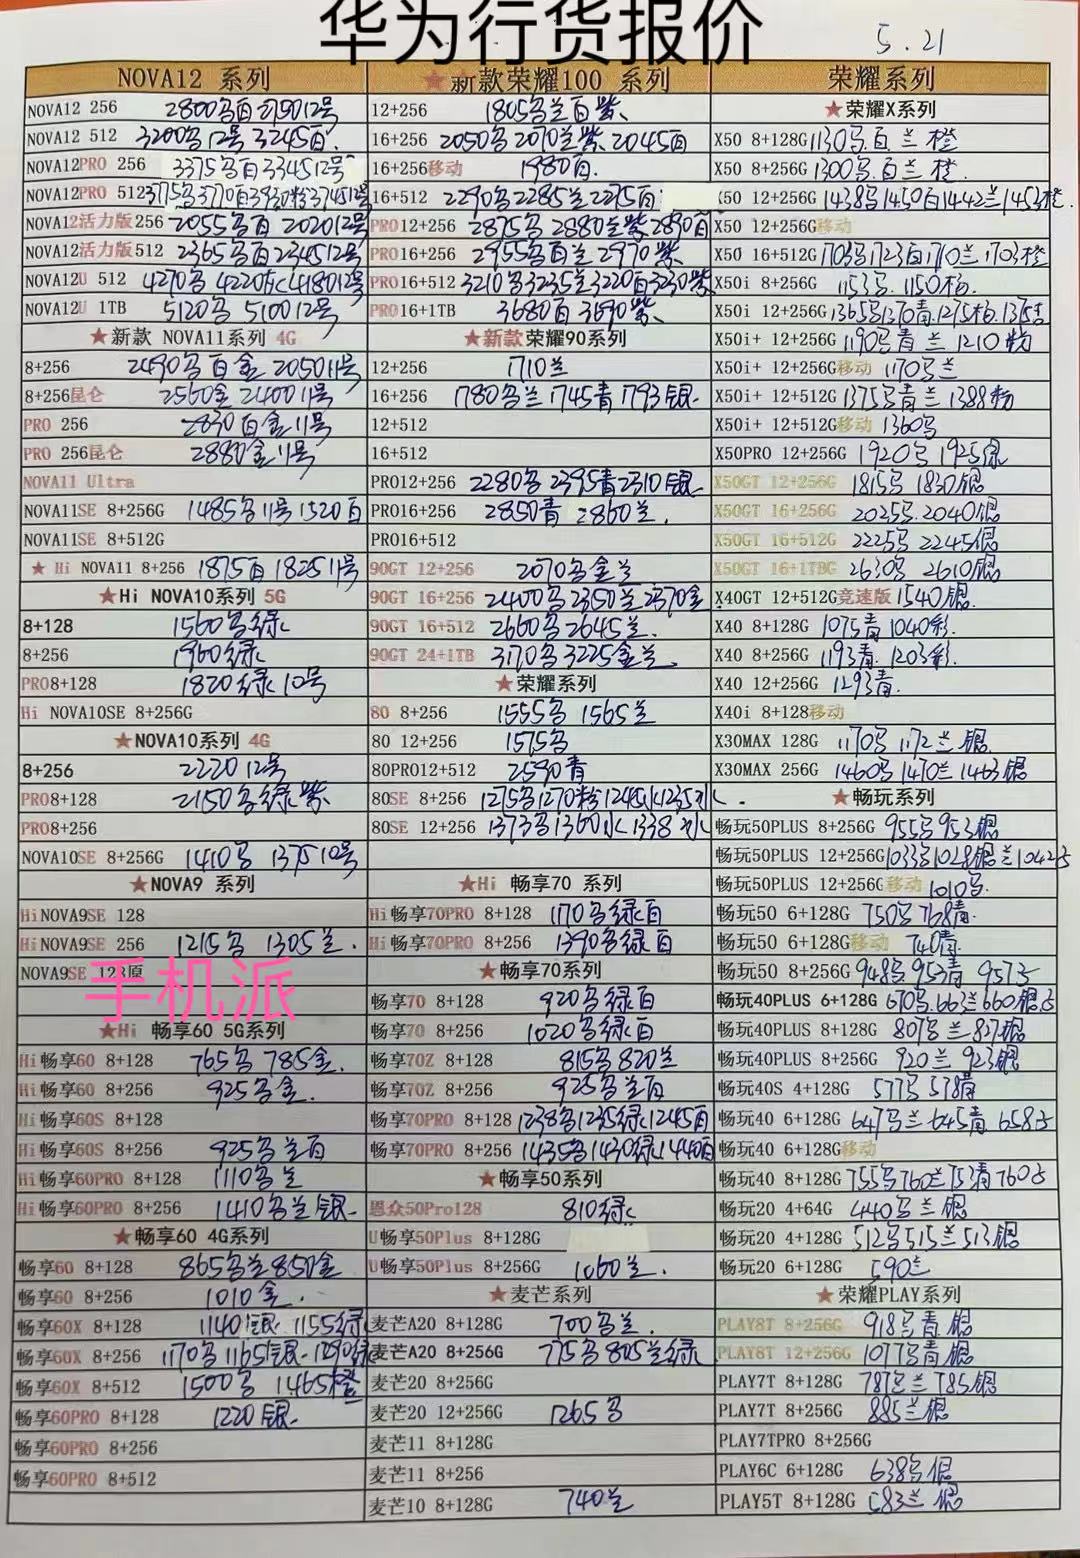 华为行货报价
5.21
NOVA12 系列
NOVA12 256
NOVA12 512 3200 12号 3245百
NOVA12PRO 256 3375 百 3345 12号
NOVA12PRO 512
NOVA12活力版256 2055 百 2020 12号
NOVA12活力版512 2365 百 2345 12号
NOVA12U 512 4270 4220 4180 12号
NOVA12U 1TB 5120 5100 12号
★新款 NOVA11系列 4G
8+256 2490 百金 2050 11号
8+256昆仑 2560金 2400 11号
PRO 256 2830 百金 11号
PRO 256昆仑 2880金 11号
NOVA11 Ultra
NOVA11SE 8+256G 1485 11号 1520百
NOVA11SE 8+512G
★ Hi NOVA11 8+256 1875百 1825 11号
★Hi NOVA10系列 5G
8+128 1560 绿
8+256 1960绿
PRO8+128 1820绿 10号
Hi NOVA10SE 8+256G
★NOVA10系列 4G
8+256 2220 12号
PRO8+128 2150 绿紫
PRO8+256
NOVA10SE 8+256G 1410 1375 10号
★NOVA9 系列
HiNOVA9SE 128
HiNOVA9SE 256 1215 1305兰.
NOVA9SE 128原
手机派
★Hi 畅享60 5G系列
Hi畅享60 8+128 765 785金.
Hi畅享60 8+256 925 金.
Hi畅享60S 8+128
Hi畅享60S 8+256 925 兰百
Hi畅享60PRO 8+128 1110 兰
Hi畅享60PRO 8+256 1410 兰银
★畅享60 4G系列
畅享60 8+128 865 兰850金
畅享60 8+256 1010金.
畅享60X 8+128 1140银 1155绿
畅享60X 8+256 1170 1165银 1290绿
畅享60X 8+512 1500 1465橙
畅享60PRO 8+128 1220银
畅享60PRO 8+256
畅享60PRO 8+512
★新款荣耀100 系列
12+256 1805 兰百紫
16+256 2050 2070兰紫 2045百
16+256移动 1980百.
16+512 2290 2285兰2275百
PRO12+256 2875 2880兰紫2890百
PRO16+256 2955 百兰 2970紫
PRO16+512 3210 3235兰3220百3230紫
PRO16+1TB 3680百 3690紫
★新款荣耀90系列
12+256 1710兰
16+256 1780 兰1745青1793银
12+512
16+512
PRO12+256 2280 2395青2310银
PRO16+256 2850青 2860兰.
PRO16+512
90GT 12+256 2070 金兰
90GT 16+256 2400 2350兰2370金
90GT 16+512 2660 2645兰.
90GT 24+1TB 3170 3225金兰
★荣耀系列
80 8+256 1555 1565兰
80 12+256 1575
80PRO12+512 2590青
80SE 8+256 1275 1270粉1245 1235
80SE 12+256 1373 1360 1338
★Hi 畅享70 系列
Hi畅享70PRO 8+128 1170 绿百
Hi畅享70PRO 8+256 1390 绿百
★畅享70系列
畅享70 8+128 920 绿百
畅享70 8+256 1020 绿百
畅享70Z 8+128 815 820兰
畅享70Z 8+256 925 兰百
畅享70PRO 8+128 1238 1235绿1245百
畅享70PRO 8+256 1435 1430绿1440百
★畅享50系列
恩众50Pro128 810绿
U畅享50Plus 8+128G
U畅享50Plus 8+256G 1060兰.
★麦芒系列
麦芒A20 8+128G 700 兰.
麦芒A20 8+256G 775 805兰绿
麦芒20 8+256G
麦芒20 12+256G 1265
麦芒11 8+128G
麦芒11 8+256
麦芒10 8+128G 740兰
荣耀系列
★荣耀X系列
X50 8+128G 1130 .百.兰 橙
X50 8+256G 1300 .百兰 橙.
X50 12+256G 1438 1450百1442兰1453橙.
X50 12+256G移动
X50 16+512G 1703 1723百1710兰1703橙
X50i 8+256G 1153 . 1150 .
X50i 12+256G 1365 1370青
X50i+ 12+256G 1190 青 兰 1210 粉
X50i+ 12+256G移动 1170 兰
X50i+ 12+512G 1375 青兰 1388粉
X50i+ 12+512G移动 1360
X50PRO 12+256G 1920 1925绿
X50GT 12+256G 1815 1830银
X50GT 16+256G 2025 .2040银
X50GT 16+512G 2225 2245银
X50GT 16+1TBG 2630 2610银
X40GT 12+512G竞速版 1540银.
X40 8+128G 1075青 1040彩.
X40 8+256G 1193青. 1203彩.
X40 12+256G 1293青.
X40i 8+128移动
X30MAX 128G 1170 1172兰 银.
X30MAX 256G 1460 1470兰 1463银
★畅玩系列
畅玩50PLUS 8+256G 955 953银
畅玩50PLUS 12+256G 1033 1028银兰1042
畅玩50PLUS 12+256G移动 1010 .
畅玩50 6+128G 750 768青.
畅玩50 6+128G移动 740青.
畅玩50 8+256G 948 953青 957
畅玩40PLUS 6+128G 670 .663兰660银
畅玩40PLUS 8+128G 807 兰 827银
畅玩40PLUS 8+256G 920兰 923银
畅玩40S 4+128G 577 578青
畅玩40 6+128G 647 兰645青 658
畅玩40 6+128G移动
畅玩40 8+128G 755 760兰753青760
畅玩20 4+64G 440 兰 银
畅玩20 4+128G 512 515兰513银
畅玩20 6+128G 590兰
★荣耀PLAY系列
PLAY8T 8+256G 918 青 银
PLAY8T 12+256G 1077 青 银
PLAY7T 8+128G 787 兰 785银
PLAY7T 8+256G 885兰银
PLAY7TPRO 8+256G
PLAY6C 6+128G 638 银
PLAY5T 8+128G 683兰 银